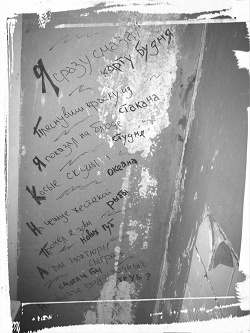 Я сразу смазал
карту будня
Плеснувши краску из
стакана
Я показал на блюде
студня
Косые скулы
океана
На чешуе жестяной
рыбы
Прочел я зовы
новых губ
А вы ноктюрн
сыграть
смогли бы